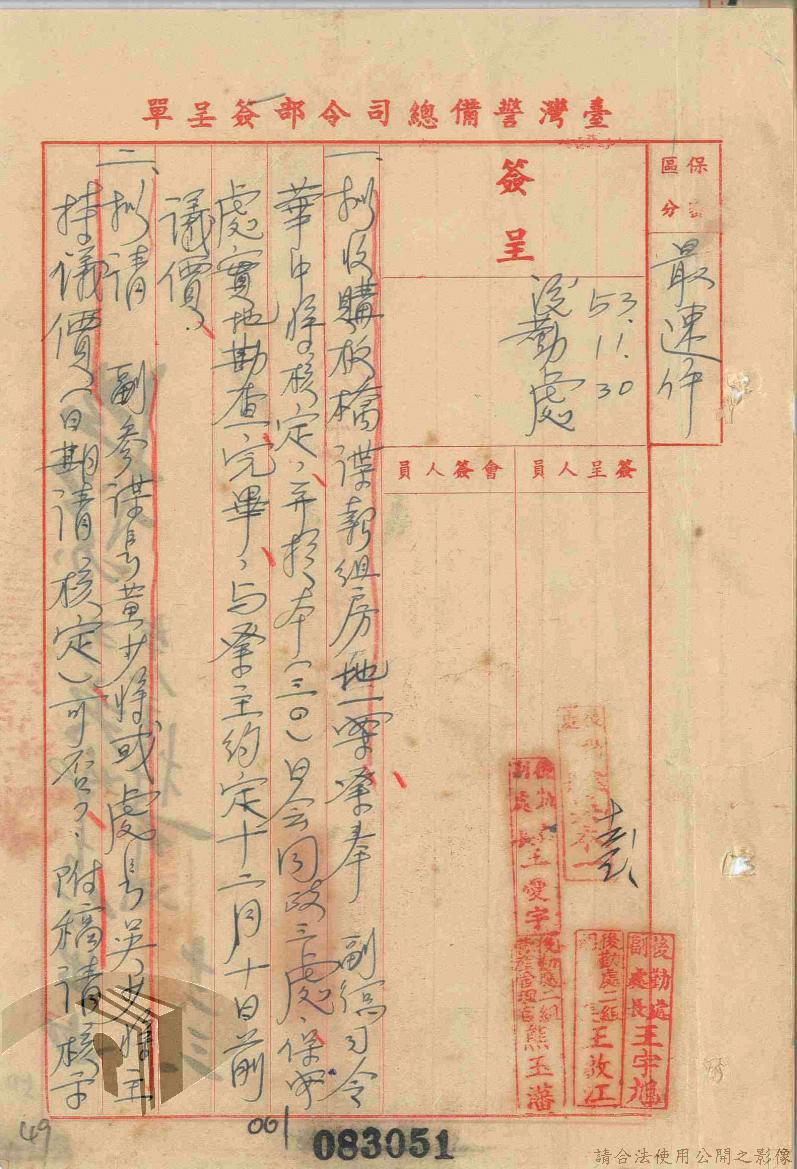 臺灣警備總司令部簽呈單
保密
區分
最速件
簽呈
53.11.30
後勤處
簽呈人員
會簽人員
一、擬收購板橋諜報組房地一案業奉 副總司令
華中將核定，并於本(三〇)日會同政三處、保安
處實地勘查完畢，与業主約定十二月十日前
議價。
二、擬請 副參謀長黃少將或處長吳少將主
持議價(日期請核定)可否？附稿請核示
後勤處
副處長 王愛宇
後勤處
副處長 王宇旭
後勤處二組
王敦江
後勤處二組
管理官 熊玉藩
001
083051
49
請合法使用公開之影像